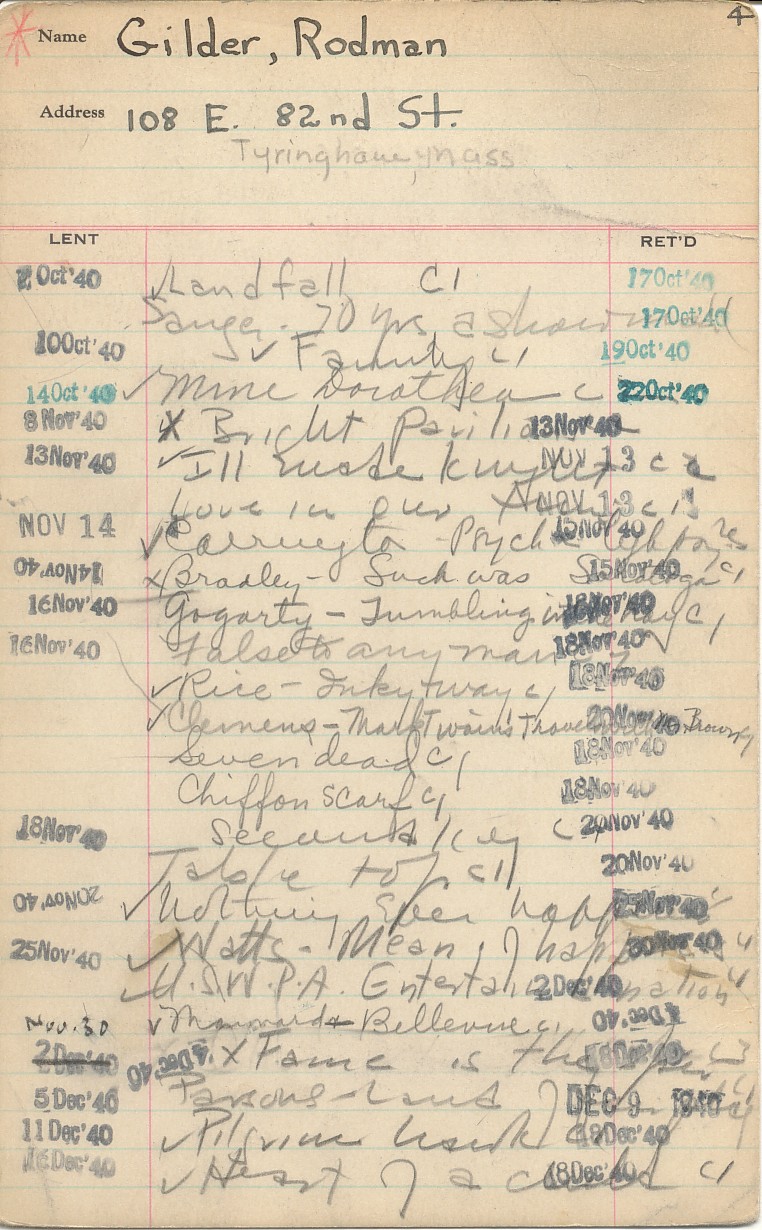 4
Name Gilder, Rodman
Address 108 E. 82nd St.
Tyringham, Mass
LENT RET'D
2 Oct '40 ✓ Landfall C1 17 Oct '40
Sanger - 70 yrs a showman 17 Oct '40
10 Oct '40 ✓ Family C1 19 Oct '40
14 Oct '40 ✓ Mme Dorothea C 22 Oct '40
8 Nov '40 X Bright Pavilions 13 Nov '40
13 Nov '40 ✓ I'll make NOV 13 C2
Love in our NOV 13 C1
NOV 14 ✓ Carrington - Psychic 15 Nov '40
14 Nov '40 X Bradley - Such was Saratoga C1 15 Nov '40
16 Nov '40 Gogarty - Tumbling in the hay C1 18 Nov '40
16 Nov '40 False to any man 18 Nov '40
✓ Rice - Inky way C1 18 Nov '40
✓ Clemens - Mark Twain's Travels with Mr. Brown 20 Nov '40
Seven dead C1 18 Nov '40
Chiffon scarf C1 18 Nov '40
18 Nov '40 Second key C 20 Nov '40
Table top C11 20 Nov '40
20 Nov '40 ✓ Nothing Ever happens 25 Nov '40
25 Nov '40 ✓ Watts - Mean, 30 Nov '40
✓ U.S.W.P.A. Entertaining a nation 2 Dec '40
Nov. 30 ✓ Bellevue C1 4 Dec '40
2 Dec '40 4 Dec '40 X Fame is the spur C3 18 Dec '40
5 Dec '40 Parsons - Land of DEC 9 1940
11 Dec '40 ✓ Pilgrim hawk C 18 Dec '40
16 Dec '40 ✓ Heart of a child C1 18 Dec '40